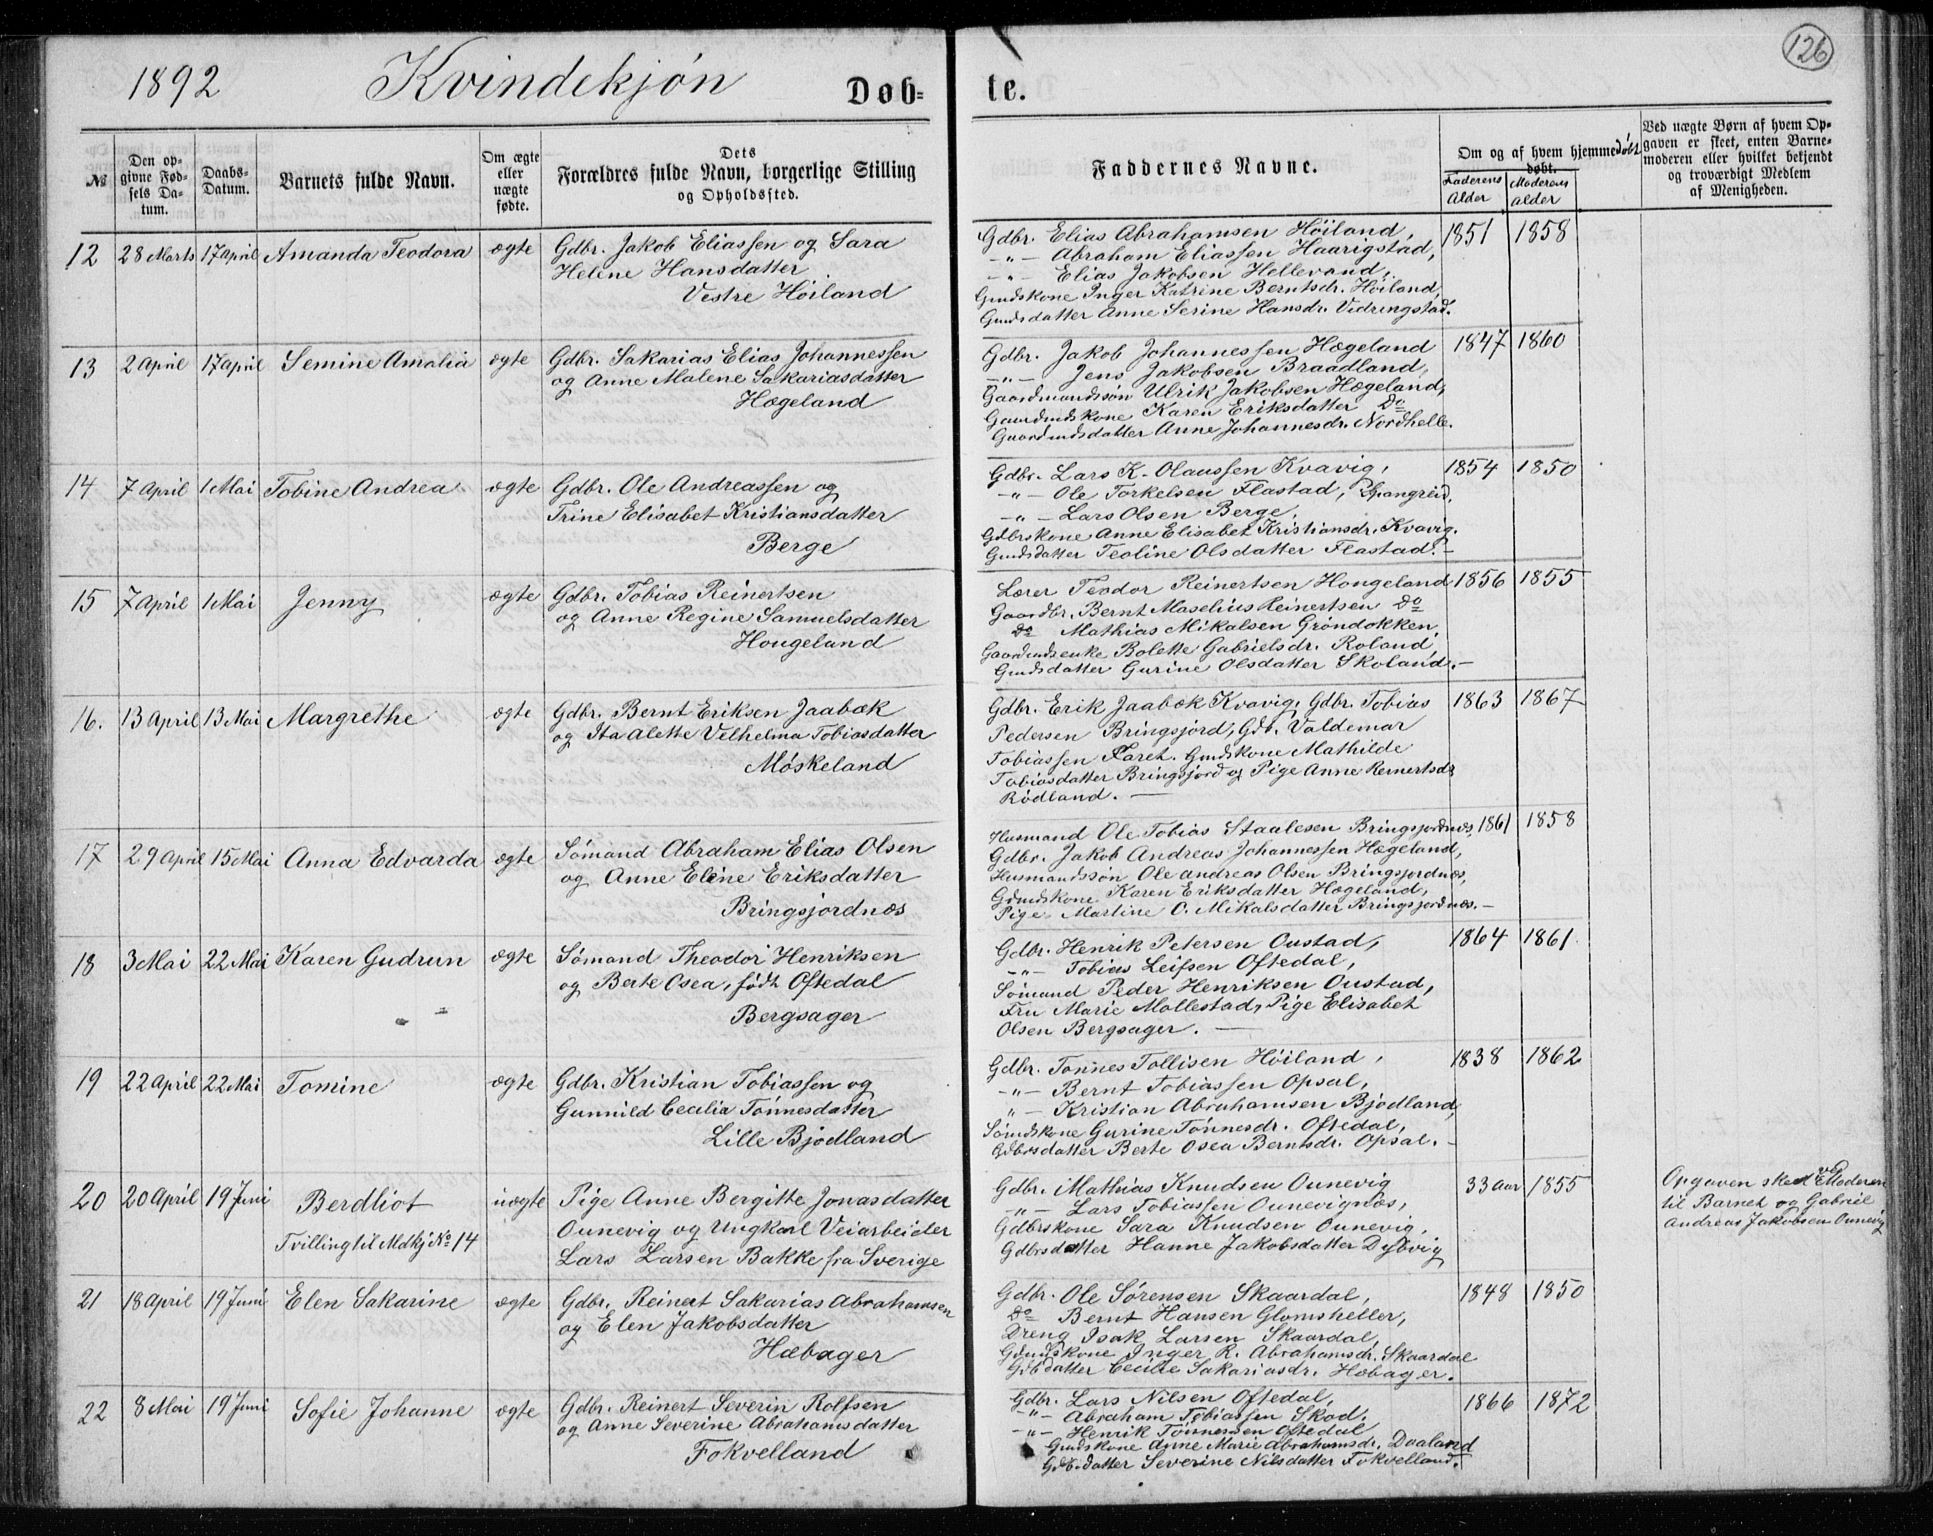 126
1892 Kvindekjøn Døb= te.
№
Den op-
givne Fød-
sels Da-
tum.
Daabs-
Datum.
Barnets fulde Navn.
Om ægte
eller
uægte
fødte.
Dets
Forældres fulde Navn, borgerlige Stilling
og Opholdssted.
Faddernes Navne.
Om og af hvem hjemmedøbt
døbt.
Faderens Alder
Moderens alder
Ved uægte Børn af hvem Op-
gaven er skeet, enten Barne-
moderen eller hvilket bekjendt
og troværdigt Medlem
af Menigheden.
12 28 Marts 17 April Amanda Teodora ægte Gdbr. Jakob Eliassen og Sara
Helene Hansdatter
Vestre Høiland
Gdbr. Elias Abrahamsen Høiland, 1851 1858
-"- Abraham Eliassen Haarigstad,
-"- Elias Jakobsen Hellevand,
Gmdskone Inger Katrine Berntsdr. Høiland,
Gmdsdatter Anne Serine Hansdr. Vidringstad.
13 2 April 17 April Semine Amalia ægte Gdbr. Sakarias Elias Johannessen
og Anne Malene Sakariasdatter
Hægeland
Gdbr. Jakob Johannessen Hægeland 1847 1860
-"- Jens Jakobsen Braadland,
Gaardmandssøn Ulrik Jakobsen Hægeland,
Gaardmdskone Karen Eriksdatter Do
Gaardmdsdatter Anne Johannesdr. Nordhelle.
14 7 April 1 Mai Tobine Andrea ægte Gdbr. Ole Andreassen og
Trine Elisabet Kristiansdatter
Berge
Gdbr. Lars K. Olaussen Kvavig, 1854 1850
-"- Ole Torkelsen Flastad, Spangreid,
-"- Lars Olsen Berge,
Gdbrskone Anne Elisabet Kristiansdr. Kvavig.
Gmdsdatter Teoline Olsdatter Flastad.-
15 7 April 1 Mai Jenny ægte Gdbr. Tobias Reinertsen
og Anne Regine Samuelsdatter
Hougeland
Lærer Teodor Reinertsen Hougeland 1856 1855
Gaardbr. Bernt Maselius Reinertsen Do
Do Mathias Mikalsen Grøndokken,
Gaardmdsenke Bolette Gabrielsdr. Roland,
Gmdsdatter Gurine Olsdatter Skoland.-
16. 13 April 13 Mai Margrethe ægte Gdbr. Bernt Eriksen Jaabæk
og Ita Alette Velhelma Tobiasdatter
Møskeland
Gdbr. Erik Jaabæk Kvavig, Gdbr. Tobias 1863 1867
Pedersen Bringsjord, Gdb. Valdemar
Tobiassen Faret. Gmdskone Mathilde
Tobiasdatter Bringsjord og Pige Anne Reinertsdr
Rødland.-
17 29 April 15 Mai Anna Edvarda ægte Sømand Abraham Elias Olsen
og Anne Eline Eriksdatter
Bringsjordnæs
Husmand Ole Tobias Staalesen Bringsjordnæs, 1861 1858
Gdbr. Jakob Andreas Johannessen Hægeland,
Husmandssøn Ole Andreas Olsen Bringsjordnæs,
Gdmdskone Karen Eriksdatter Hægeland,
Pige Martine O. Mikalsdatter Bringsjordnæs.-
18 3 Mai 22 Mai Karen Gudrun ægte Sømand Theodor Henriksen
og Berte Osea, født Oftedal
Bergsager
Gdbr. Henrik Petersen Oustad, 1864 1861
-"- Tobias Leifsen Oftedal,
Sømand Peder Henriksen Oustad,
Fru Marie Mollestad, Pige Elisabet
Olsen Bergsager.-
19 22 April 22 Mai Tomine ægte Gdbr. Kristian Tobiassen og
Gunnild Cecilia Tønnesdatter
Lille Bjodland
Gdbr. Tønnes Tollisen Høiland, 1838 1862
-"- Bernt Tobiassen Opsal,
"- Kristian Abrahamsen Bjodland,
Sømdskone Gurine Tønnesdr. Oftedal,
Gdbrsdatter Berte Osea Berntsdr. Opsal.-
20 20 April 19 Juni Berdliot uægte Pige Anne Bergitte Jonasdatter
Tvilling til Mdkj No 14
Ounevig og Ungkarl Veiarbeider
Lars Larsen Bakke fra Sverige
Gdbr. Mathias Knudsen Ounevig 33 aar 1855
-"- Lars Tobiassen Ounevignæs,
Gdbrskone Sara Knudsen Ounevig,
Gdbrsdatter Hanne Jakobsdatter Dybvig
Opgaven skeet ved Moderen
til Barnet og Gabriel
Andreas Jakobsen Ounevig
21 18 April 19 Juni Elen Sakarine ægte Gdbr. Reinert Sakarias Abrahamsen
og Elen Jakobsdatter
Hæbager
Gdbr. Ole Sørensen Skaardal, 1848 1850
Do Bernt Hansen Glomsheller,
Dreng Isak Larsen Skaardal,
Gdmdskone Inger R. Abrahamsdr. Skaardal
Gdbdatter Cecilie Sakariasdr. Hæbager.
22 8 Mai 19 Juni Sofie Johanne ægte Gdbr. Reinert Severin Rolfsen
og Anne Severine Abrahamsdatter
Fokvelland
Gdbr. Lars Nilsen Oftedal, 1866 1872
-"- Abraham Tobiassen Skod,
-"- Henrik Tønnesen Oftedal
Gmdskone Anne Marie Abrahamsdr. Daaland
Gdbdatter Severine Nilsdatter Fokvelland.